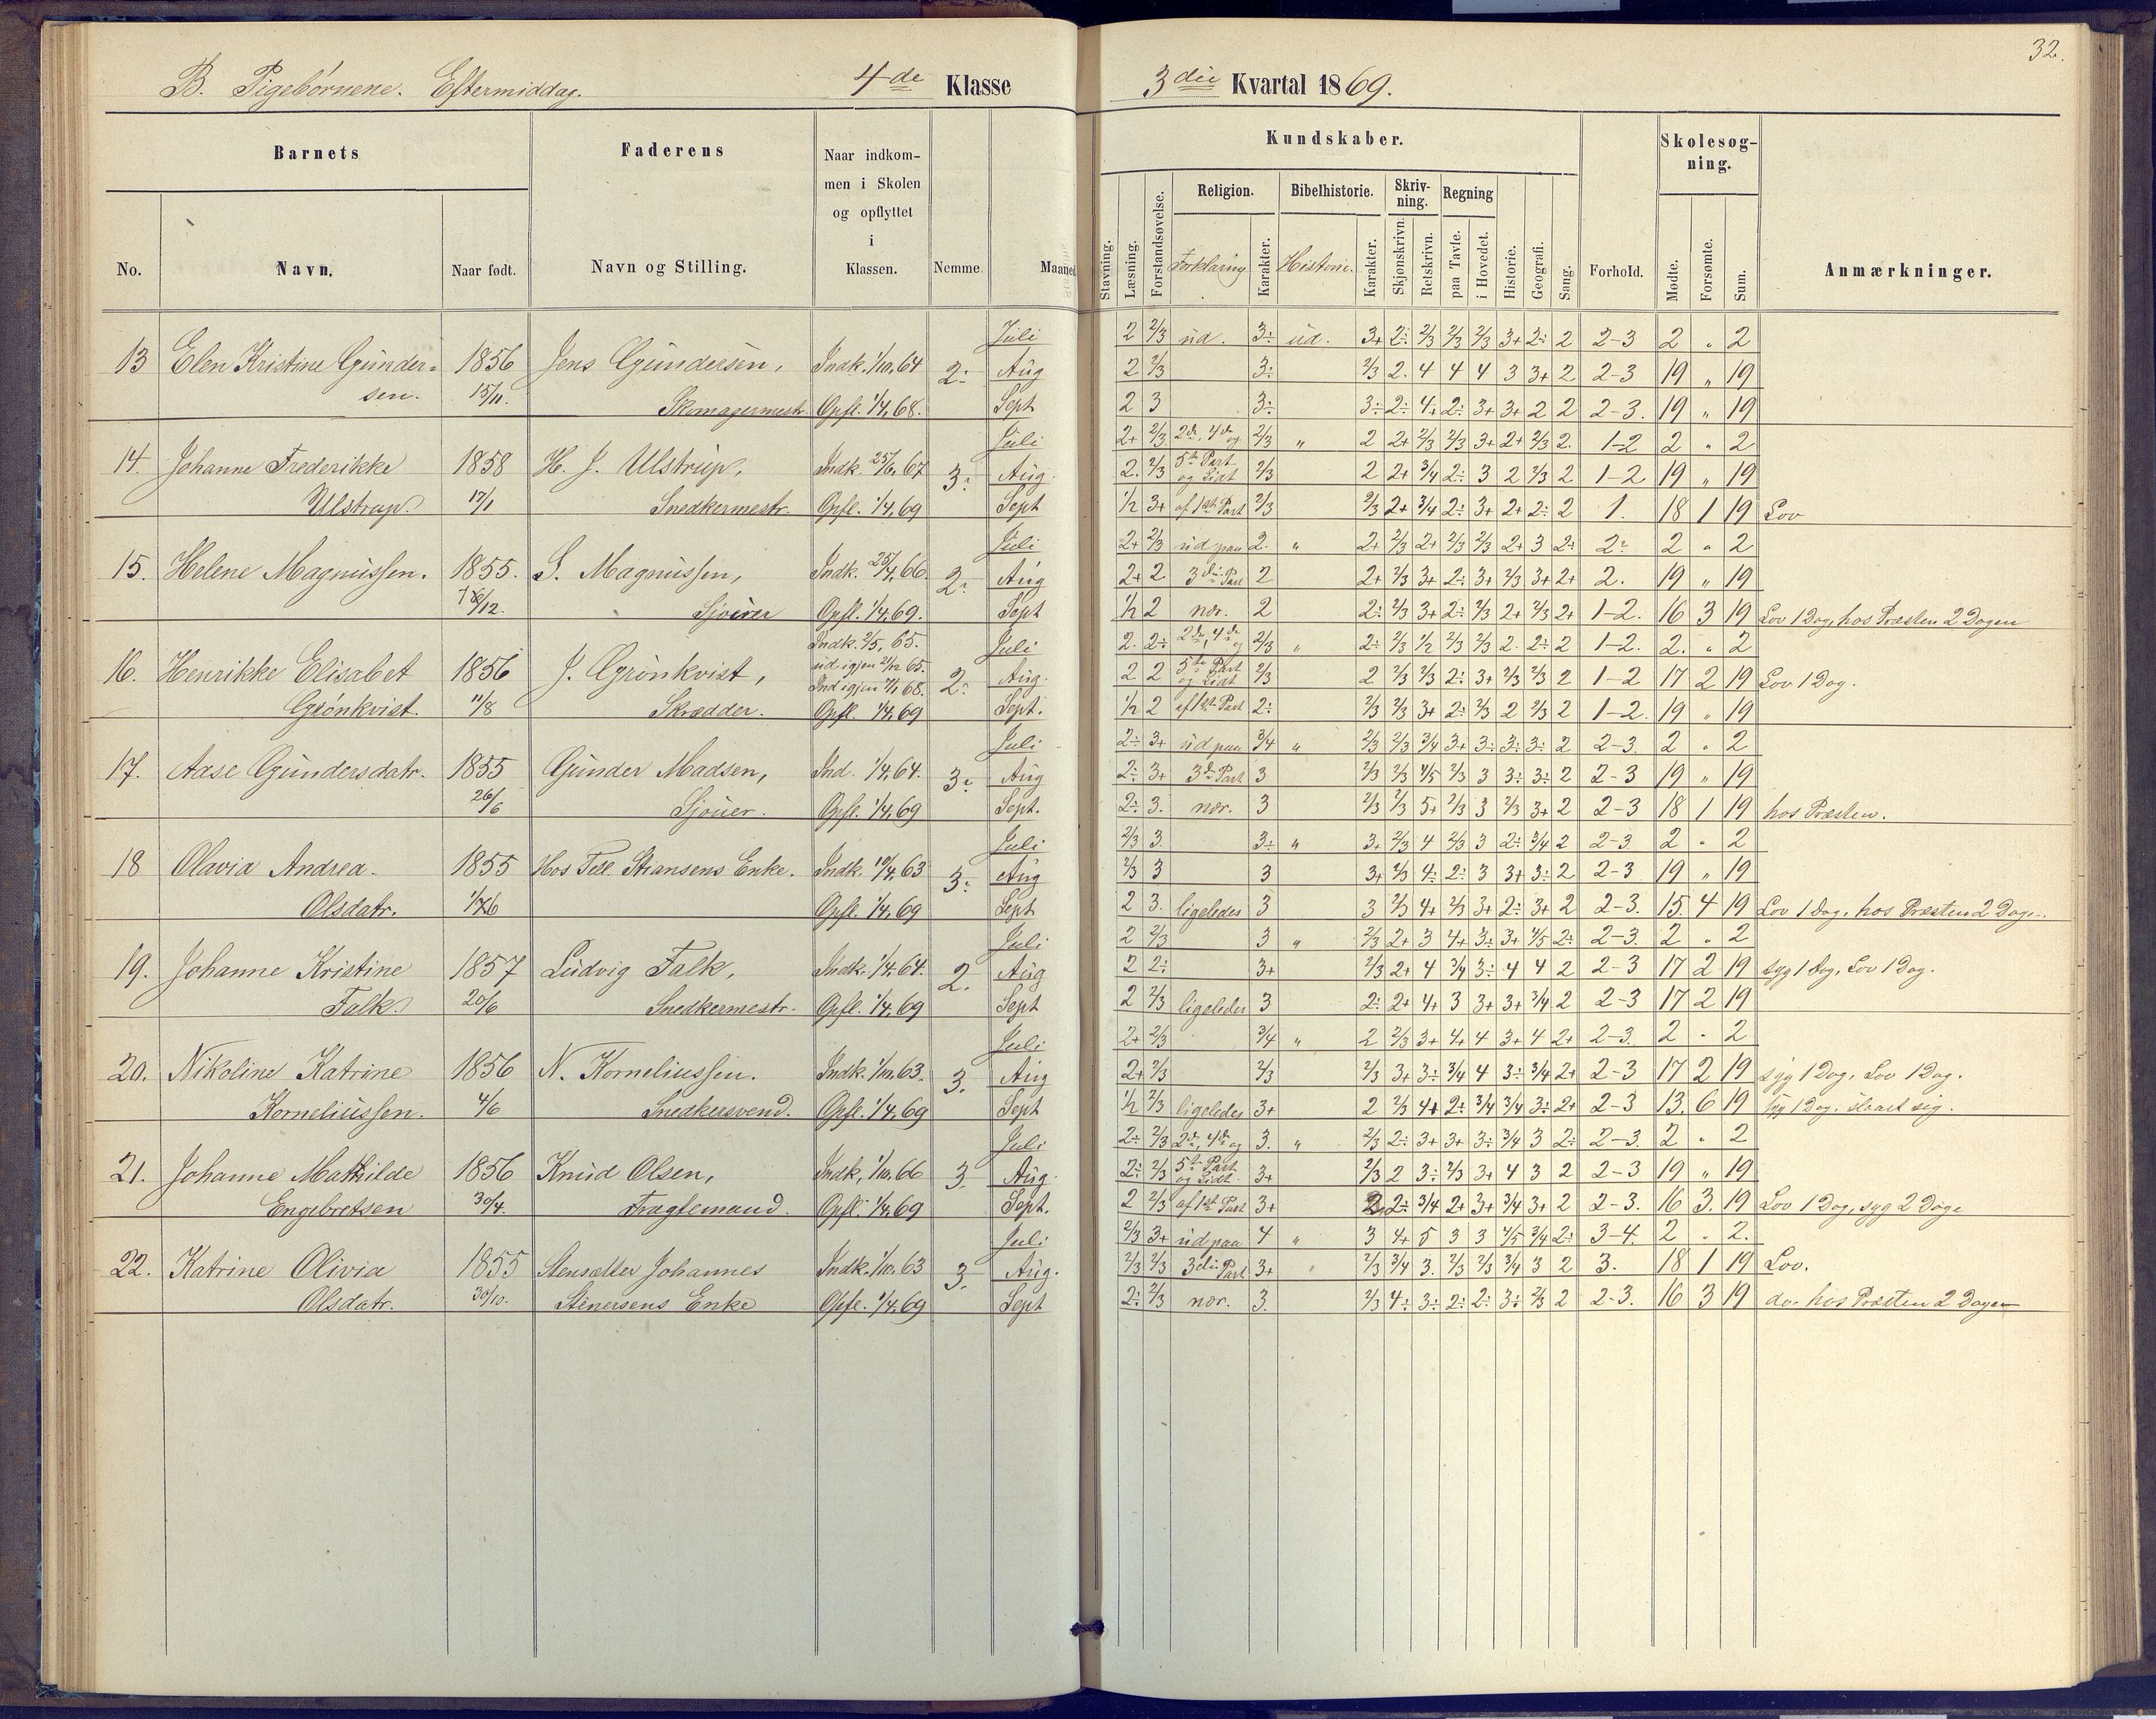 32.
B. Pigebørnene. Eftermiddag. 4de Klasse 3die Kvartal 1869.
Barnets Faderens Naar indkom-
men i Skolen
og opflyttet
i
Klassen.
No. Navn. Naar født. Navn og Stilling. Nemme. Maaned
Kundskaber. Skolesøg-
ning.
Religion. Bibelhistorie. Skriv-
ning. Regning
Stavning. Læsning. Forstandsøvelse. Forklaring Karakter. Historie. Karakter. Skjønskrivn. Retskrivn. paa Tavle. i Hovedet. Historie. Geografi. Sang. Forhold. Mødte. Forsømte. Sum. Anmærkninger.
Juli 2 2/3 ud. 3÷ ud. 3+ 2÷ 2/3 2/3 2/3 3+ 2÷ 2 2-3 2 „ 2
13 Elen Kristine Gunder- 1856 Jens Gundersen, Indk. 1/10, 64 2÷ Aug 2 2/3 3÷ 2/3 2. 4 4 4 3 3+ 2 2-3 19 „ 19
sen. 15/11. Skomagermestr. Opfl. 1/4, 68. Sept 2 3 3÷ 3÷ 2÷ 4+ 2÷ 3+ 3+ 2 2 2-3. 19 „ 19
Juli 2+ 2/3 2den, 4de og 2/3 „ 2 2+ 2/3 2/3 3+ 2+ 2/3 2. 1-2 2 „ 2
14. Johanne Frederikke 1858 H. J. Ulstrup, Indk. 25/6, 67 3÷ Aug. 2. 2/3 5te Part og Lidt 2/3 2 2+ 3/4 2÷ 3 2 2/3 2 1-2 19 „ 19
Ulstrup. 17/1 Snedkermestr. Opfl. 1/4, 69 Sept 1/2 3+ af 1ste Part 2/3 2/3 2+ 3/4 2÷ 3+ 2+ 2÷ 2 1. 18 1 19 Lov
Juli 2+ 2/3 ud paa 2. „ 2+ 2/3 2+ 2/3 2/3 2+ 3 2÷ 2÷ 2 „ 2
15. Helene Magnussen. 1855. S. Magnussen, Indk. 25/4, 66. 2÷ Aug 2+ 2 3die Part 2 2+ 2/3 3+ 2÷ 3+ 2/3 3+ 2+ 2. 19 „ 19
/12. Sjouer Opfl. 1/4, 69. Sept 1/2 2 nær. 2 2÷ 2/3 3+ 2÷ 2/3 2+ 2/3 2+ 1-2. 16 3 19 Lov 1 Dag, hos Præsten 2 Dagen
Indk. 2/5, 65. Juli 2. 2÷ 2den, 4de og 2/3 „ 2÷ 2/3 1/2 2/3 2/3 2. 2÷ 2 1-2. 2. „ 2
16. Henrikke Elisabet 1856 J. Grønkvist, ud igjen 21/12 65. Ind igjen 7/1 68. 2÷ Aug. 2 2 5te Part og Lidt 2/3 2 2/3 2/3 2÷ 3+ 2/3 2/3 2 1-2 17 2 19 Lov 1 Dag.
Grønkvist. 11/8 Skrædder. Opfl. 1/4, 69 Sept. 1/2 2 af 1ste Part 2÷ 2/3 2/3 3+ 2÷ 2/3 2 2/3 2 1-2. 19 „ 19
Juli 2÷ 3+ ud paa 3/4 „ 2/3 2/3 3/4 3+ 3÷ 3÷ 3÷ 2 2-3. 2 „ 2
17. Aase Gundersdatr. 1855 Gunder Madsen, Ind. 1/4, 64. 3÷ Aug 2÷ 3+ 3die Part 3 2/3 2/3 4/5 2/3 3 3÷ 3÷ 2 2-3 19 „ 19
26/6 Sjouer. Opfl. 1/4, 69 Sept. 2÷ 3. nær. 3 2/3 2/3 5+ 2/3 3 2/3 3+ 2 2-3 18 1 19 hos Præsten.
Juli 2/3 3. 3÷ „ 3+ 2/3 4 2/3 3 2÷ 3/4 2 2-3. 2 „ 2
18 Olavia Andrea- 1855 Hos Tell Stiansens Enke. Indk. 10/4, 63 3÷ Aug 2/3 3 3 3+ 2/3 4÷ 2÷ 3 3+ 3÷ 2 2-3 19 „ 19
Olsdatr. Opfl. 1/4, 69 Sept 2 3. ligeledes 3 3 2/3 4+ 2/3 3+ 2÷ 3+ 2 2-3. 15. 4 19 Lov 1 Dag, hos Præsten 2 Dage.
Juli 2 2/3 3 „ 2/3 2+ 3 4+ 3÷ 3+ 4/5 2÷ 2-3. 2 „ 2
19. Johanne Kristine 1857 Ludvig Falk, Indk. 1/4, 64. 2. Aug 2 2÷ 3+ 2/3 2+ 4 3/4 3÷ 4 4 2 2-3 17 2 19 syg 1 Dag, Lov 1 Dag.
Falk. 20/6 Snedkermestr. Opfl. 1/4, 69 Sept 2 2/3 ligeledes 3 2÷ 2+ 4+ 3 3+ 3+ 3/4 2 2-3 17 2 19
Juli 2+ 2/3 3/4 „ 2 2/3 3+ 4+ 4 3+ 4 2+ 2-3. 2 „ 2
20. Nikoline Katrine 1856 N. Korneliussen. Indk. 1/10, 63. 3. Aug 2+ 2/3 2/3 2/3 3+ 3÷ 3/4 4 3÷ 3/4 2+ 2-3 17 2 19 syg 1 Dag, Lov 1 Dag.
Korneliussen. 4/6 Snedkersvend. Opfl. 1/4, 69 Sept 1/2 2/3 ligeledes 3+ 2 2/3 4+ 2÷ 3/4 3/4 3÷ 2+ 2-3 13. 6 19 syg 1 Dag. slaaet sig.
Juli 2÷ 2/3 2den, 4de og 3. „ 2/3 2÷ 3+ 3+ 3÷ 3/4 3 2÷ 2-3. 2 „ 2
21. Johanne Mathilde 1856 Knud Olsen, Indk. 1/10, 66 3. Aug. 2÷ 2/3 5te Part og Lidt 3+ 2/3 2 3÷ 2/3 3+ 4 3 2 2-3 19 „ 19
Engebretsen 30/4. Fragtemand. Opfl. 1/4, 69 Sept. 2 2/3 af 1ste Part 3+ 2 2÷ 3/4 2+ 3+ 3/4 3+ 2 2-3. 16 3. 19 Lov 1 Dag, syg 2 Dage
Juli 2/3 3+ ud paa 4 „ 3 4+ 5 3 3 4/5 3/4 2÷ 3-4. 2 „ 2.
22. Katrine Olivia 1855 Stensætter Johannes Indk. 1/10, 63 3. Aug. 2/3 2/3 3die Part 3+ „ 2/3 3/4 3. 2/3 2/3 3/4 3 2 3. 18 1 19 Lov.
Olsdatr. 30/10. Stinersens Enke Opfl. 1/4, 69 Sept 2÷ 2/3 nær. 3. 2/3 4÷ 3÷ 2÷ 2÷ 3÷ 2/3 2 2-3. 16 3 19 do. hos Præsten 2 Dagen